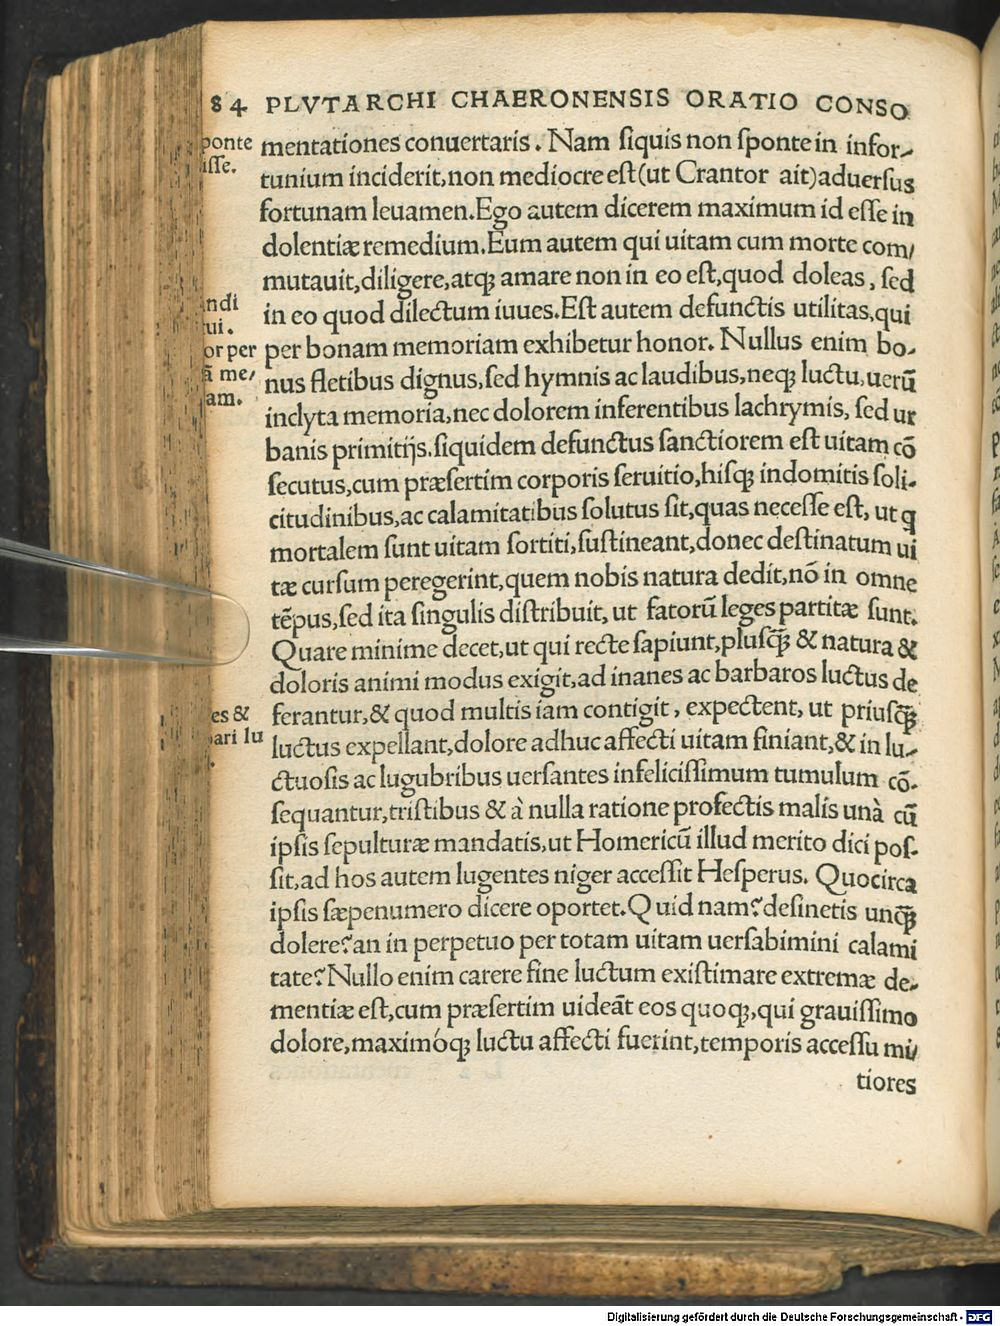 84 PLVTARCHI CHAERONENSIS ORATIO CONSO
ponte
isse.
mentationes conuertaris. Nam siquis non sponte in infor-
tunium inciderit,non mediocre est(ut Crantor ait)aduersus
fortunam leuamen.Ego autem dicerem maximum id esse in
dolentiæ remedium.Eum autem qui uitam cum morte com/
mutauit,diligere,atqꝫ amare non in eo est,quod doleas, sed
in eo quod dilectum iuues.Est autem defunctis utilitas,qui
per bonam memoriam exhibetur honor. Nullus enim bo-
nus fletibus dignus,sed hymnis ac laudibus,neqꝫ luctu,uerū
inclyta memoria,nec dolorem inferentibus lachrymis, sed ur
banis primitijs.siquidem defunctus sanctiorem est uitam cō
secutus,cum præsertim corporis seruitio,hisqꝫ indomitis soli-
citudinibus,ac calamitatibus solutus sit,quas necesse est, ut q
mortalem sunt uitam sortiti,sustineant,donec destinatum ui
tæ cursum peregerint,quem nobis natura dedit,nō in omne
tēpus,sed ita singulis distribuit, ut fatorū leges partitæ sunt.
Quare minime decet,ut qui recte sapiunt,plusꝗ̃ & natura &
doloris animi modus exigit,ad inanes ac barbaros luctus de
ferantur,& quod multis iam contigit, expectent, ut priusꝗ̃
luctus expellant,dolore adhuc affecti uitam finiant,& in lu-
ctuosis ac lugubribus uersantes infelicissimum tumulum cō-
sequantur,tristibus & à nulla ratione profectis malis unà cū
ipsis sepulturæ mandatis,ut Homericū illud merito dici pos-
sit,ad hos autem lugentes niger accessit Hesperus. Quocirca
ipsis sæpenumero dicere oportet.Quid nam?desinetis unꝗ̃
dolere?an in perpetuo per totam uitam uersabimini calami
tate?Nullo enim carere fine luctum existimare extremæ de-
mentiæ est,cum præsertim uideāt eos quoqꝫ,qui grauissimo
dolore,maximóqꝫ luctu affecti fuerint,temporis accessu mi/
tiores
ndi
ui.
or per
ā me/
am.
es &
pari lu
Digitalisierung gefördert durch die Deutsche Forschungsgemeinschaft - DFG